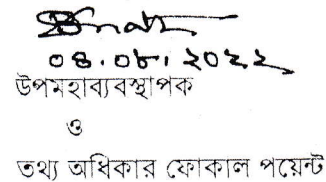 ০৪.০৮.২০২২
উপমহাব্যবস্থাপক
ও
তথ্য অধিকার ফোকাল পয়েন্ট